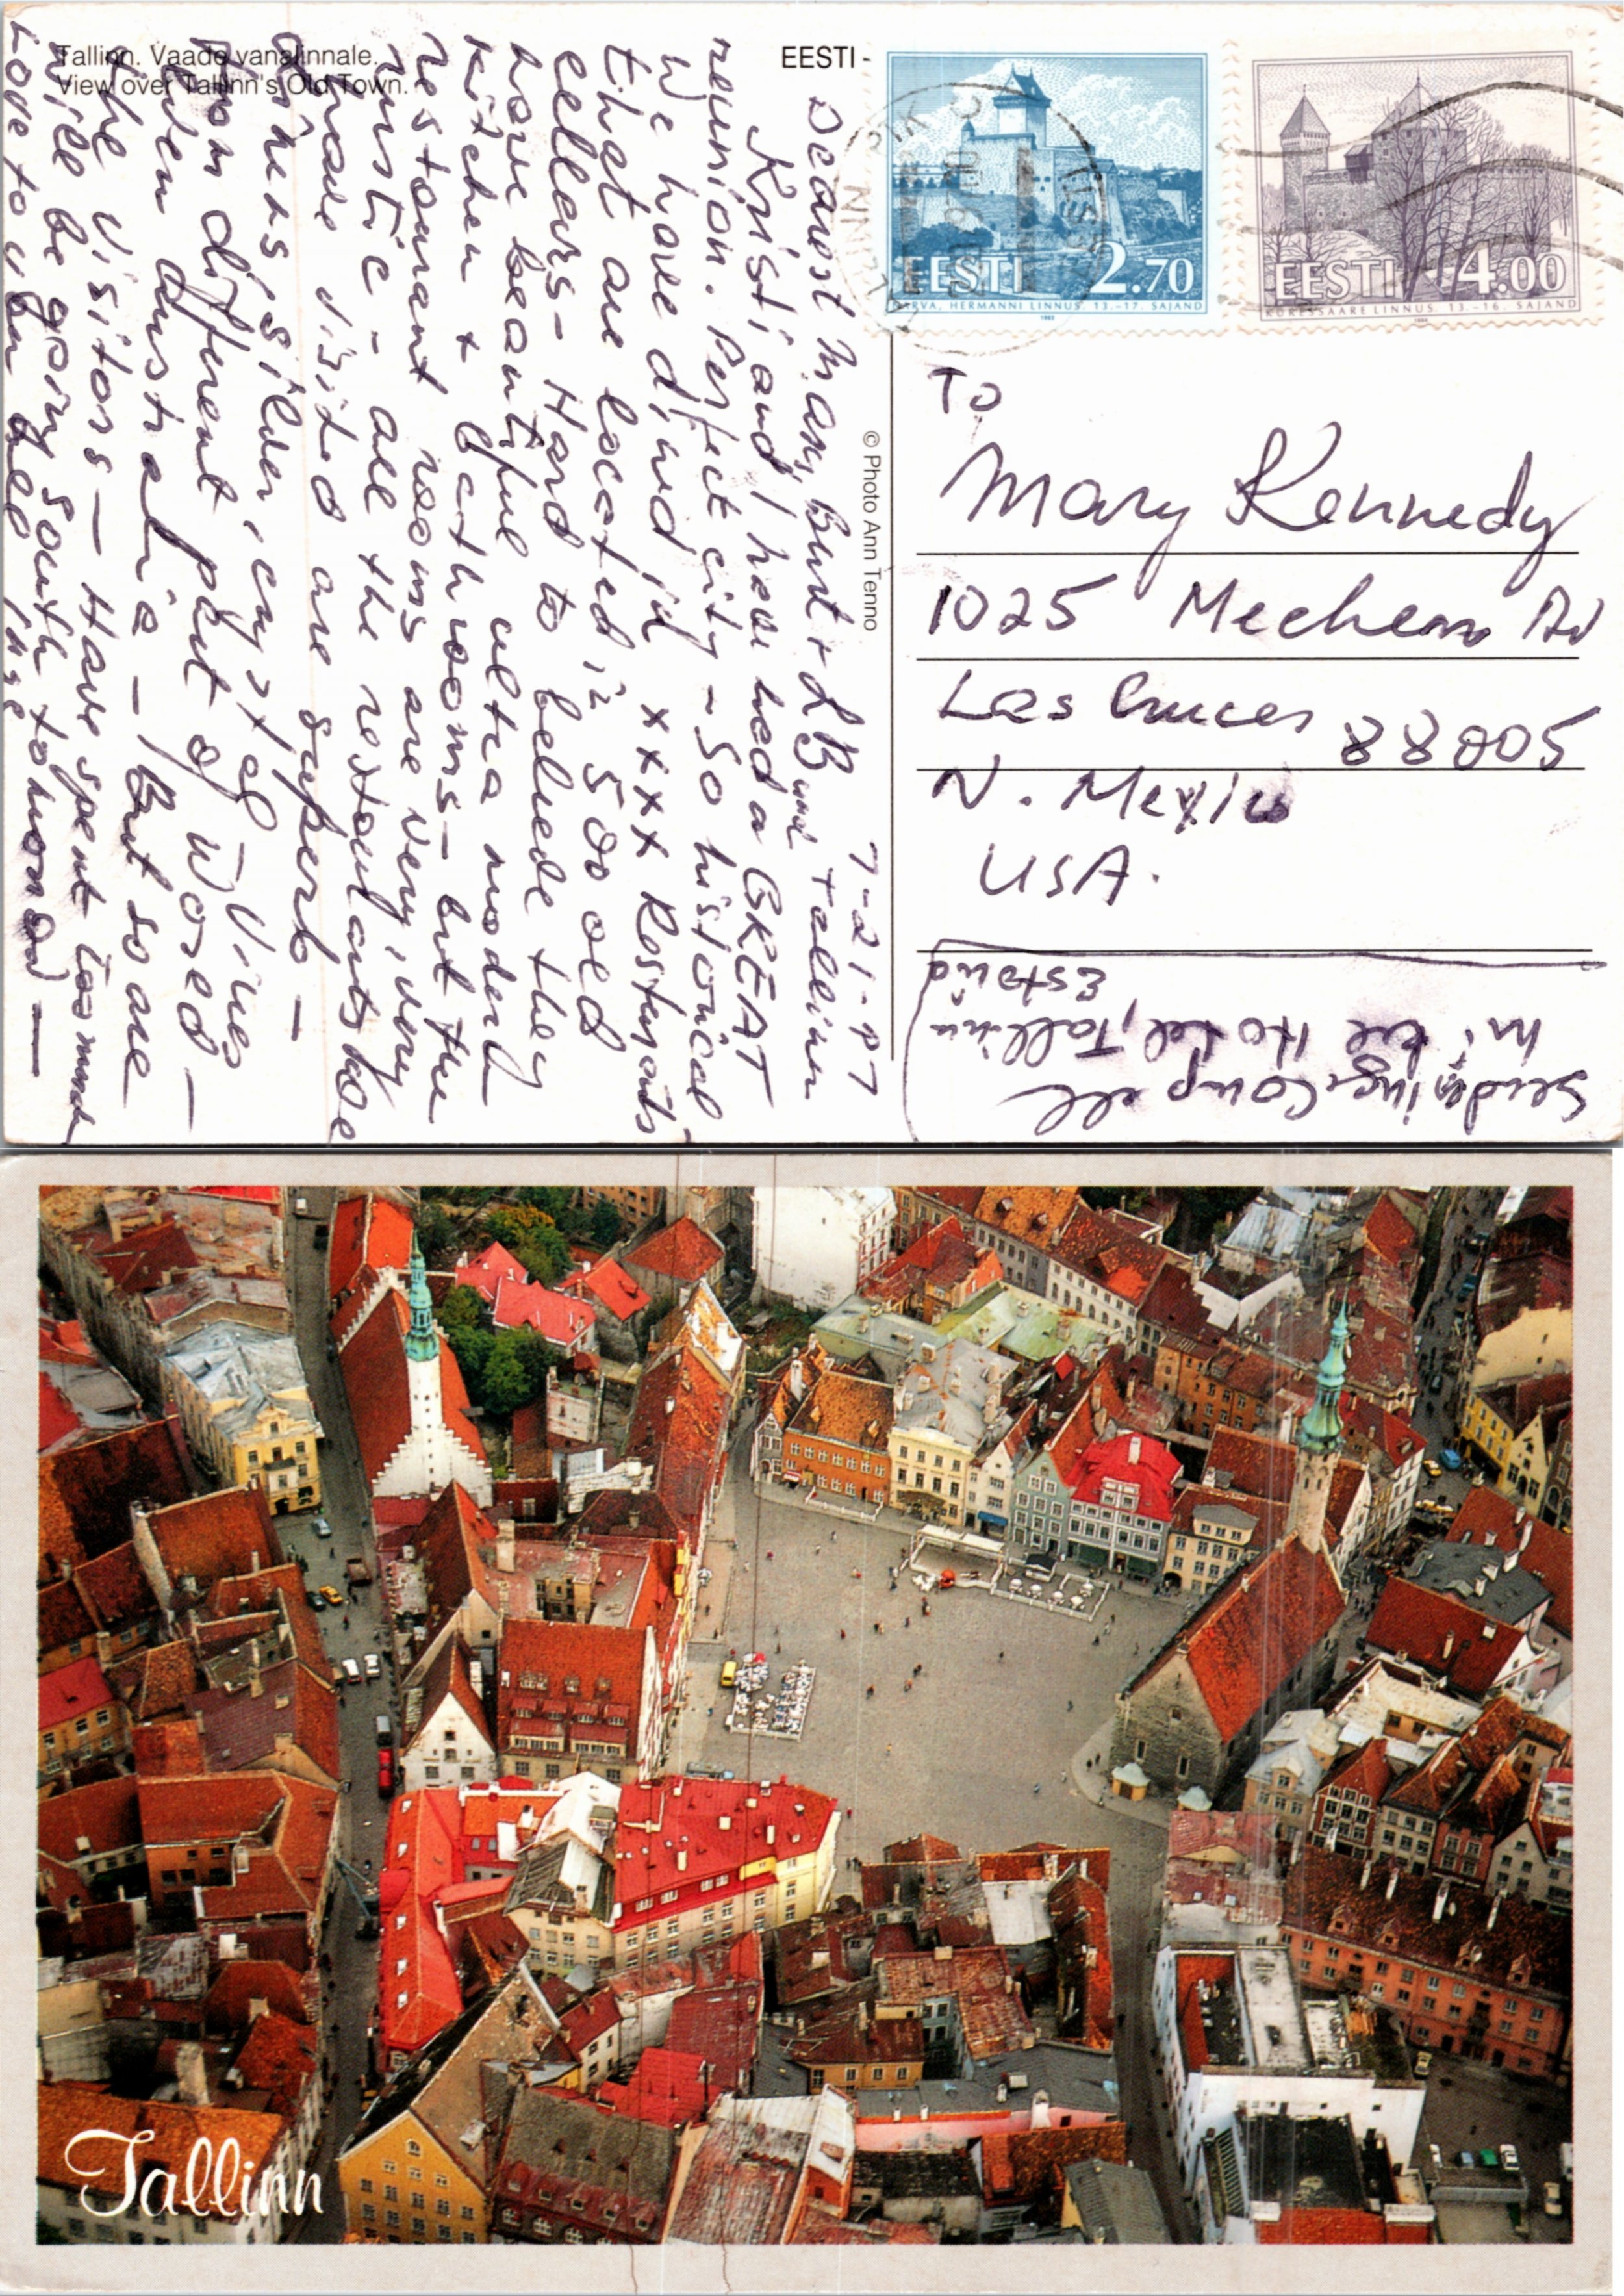 Tallinn. Vaade vanalinnale.
View over Tallinn's Old Town.
EESTI -
EESTI 2.70
NARVA, HERMANNI LINNUS. 13.-17. SAJAND
1993
EESTI 4.00
KURESSAARE LINNUS. 13.-16. SAJAND
1994
TALLINN
EESTI
© Photo Ann Tenno
7-21-97
Tallinn
Dearest Mary, Burt + LB
Kristi and I have had a GREAT
reunion. Perfect city - so historical
We have dined in xxxx Restaurants
that are located in 500 old
cellers - Hard to beliede they
have beautiful ultra modern
kitchen + bathrooms - but the
restaurant rooms are very, very
rustic - all the restaurants we
have visited are superb -
from different part of World -
even Australia - But some
the visitors - Have spent
Will be going south tomorrow -
Love to
To
Mary Kennedy
1025 Mechem Rd
Las Cruces 88005
N. Mexico
USA.
Hotel, Tallinn
Estonia
Tallinn